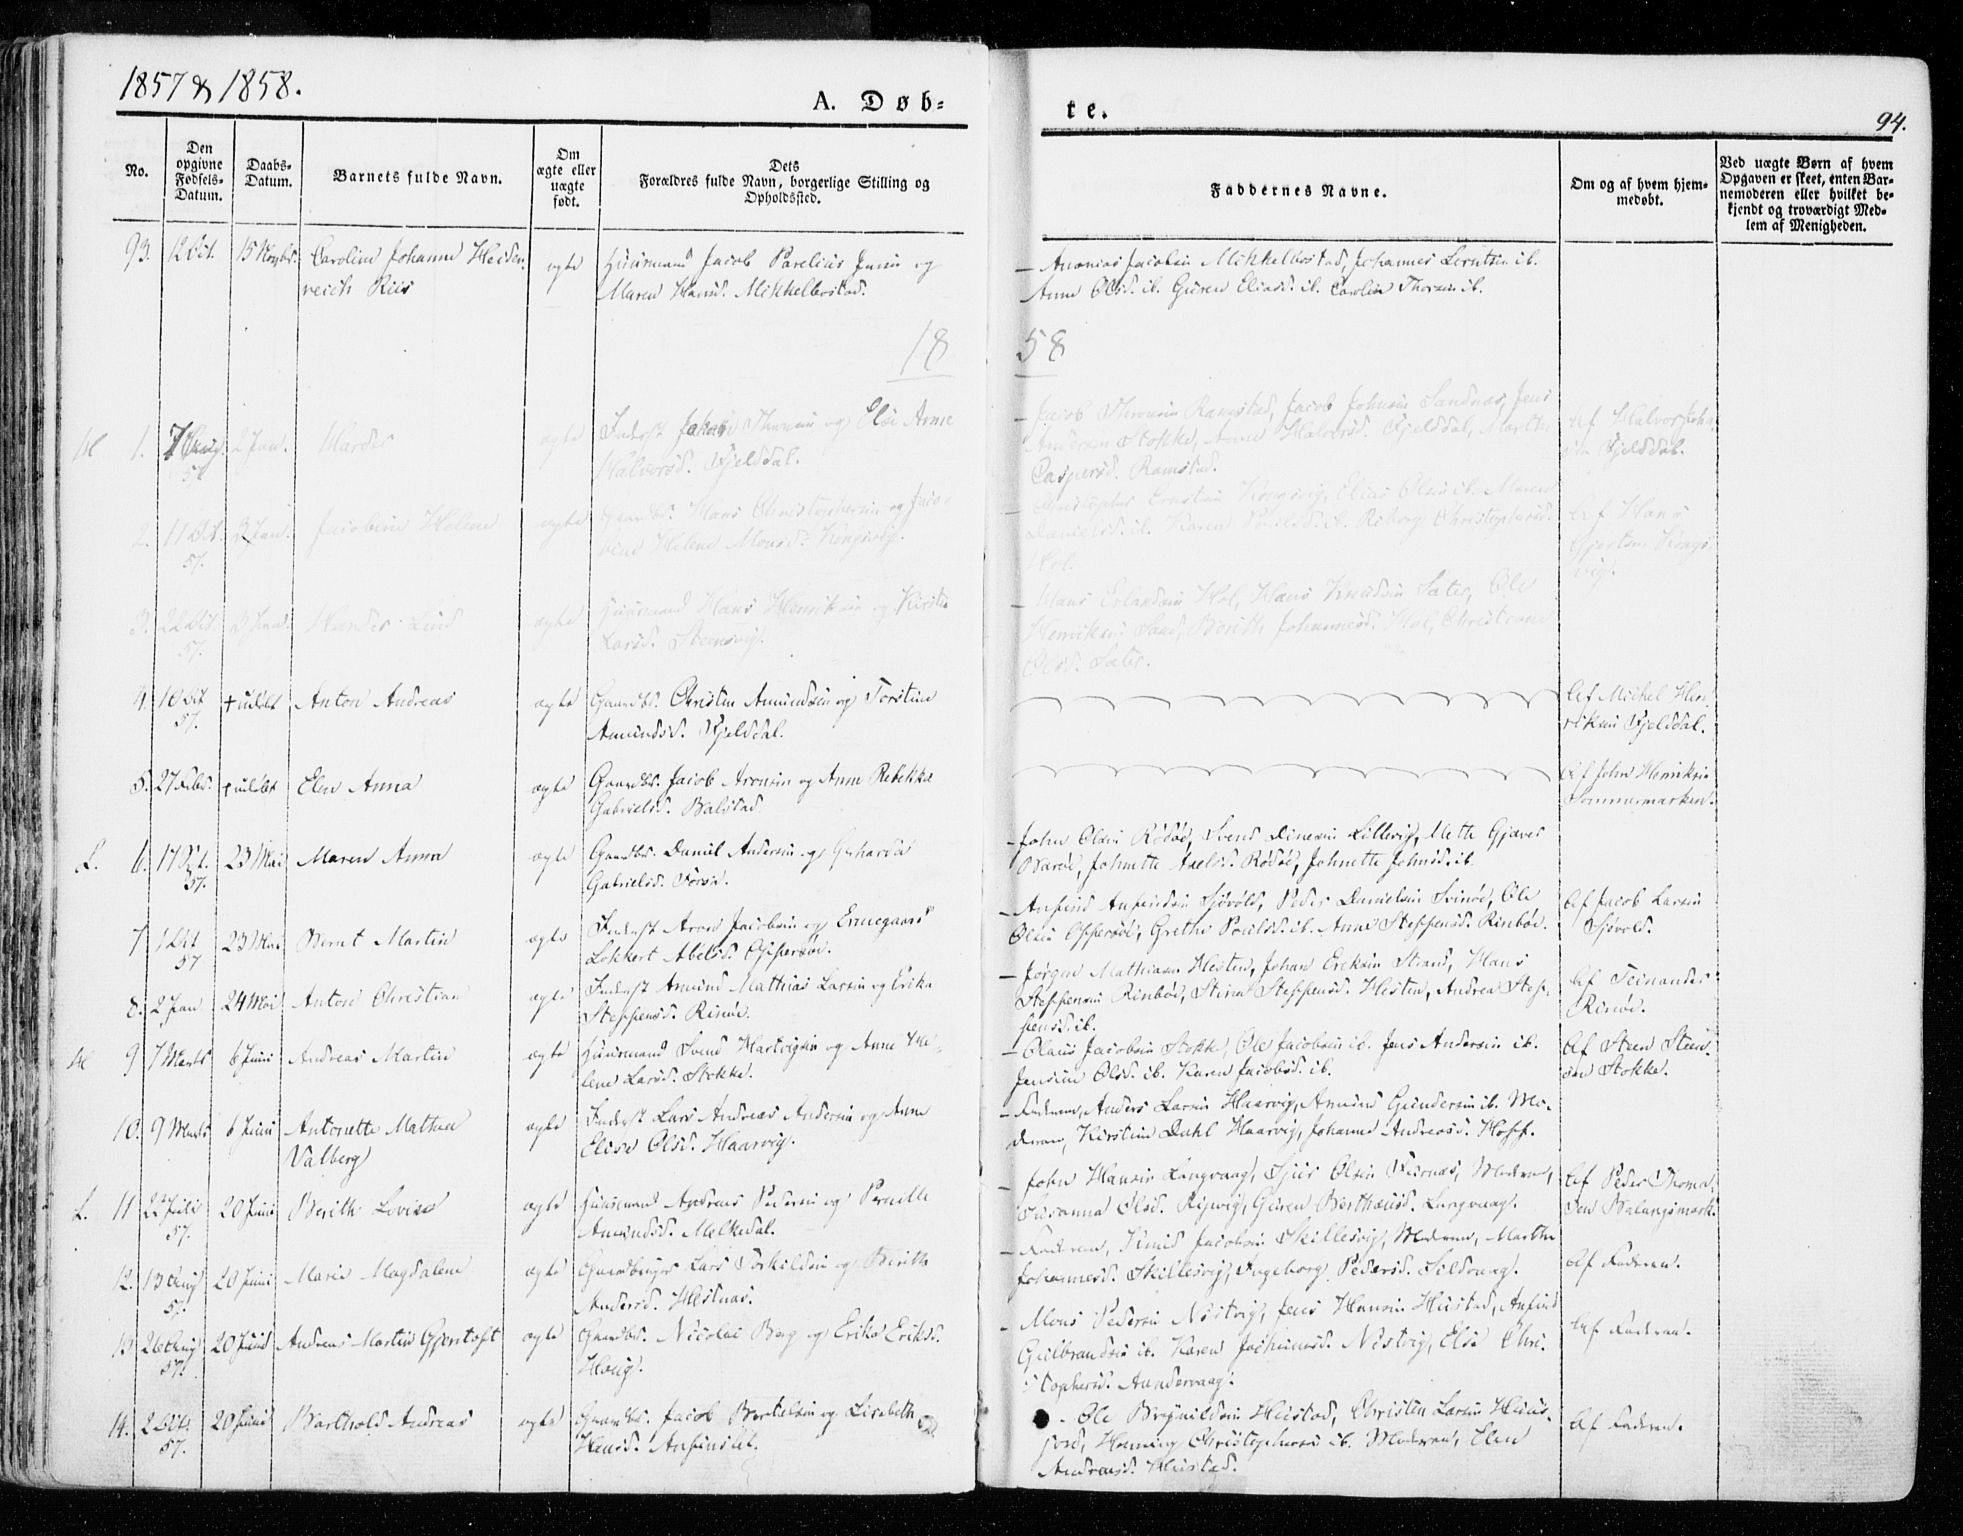 1857 & 1858.
A. Døb=
te.
94.
No.
Den opgivne Fødsels-Datum.
Daabs-Datum.
Barnets fulde Navn.
Om ægte eller uægte født.
Dets Forældres fulde Navn, borgerlige Stilling og Opholdssted.
Faddernes Navne.
Om og af hvem hjemmedøbt.
Ved uægte Børn af hvem Opgaven er skeet, enten Barnemoderen eller hvilket bekjendt og troværdigt Medlem af Menigheden.
93. 12 Oct. 15 Novbr. Caroline Johanna Heiden
reich Riis
ægte
Huusmand Jacob Parelius Jensen og
Maren Hansd. Mikkelbostad.
Ananias Jacobsen Mikkelbostad, Johannes Berntsen ib.
Anne Olsd. ib. Guren Eliasd. ib. Carolin Thorsen ib.
18
58
1. 2 Jan.
ægte
og Else Anne
Halvorsd. Fjelddal.
Jacob Thomsen Ramstad, Jacob Johnsen Sandnæs, Jens
Andersen Stokke, Anne Halvorsd. Fjelddal, Marthe
Caspersd. Ramstad.
Af Halvor John
sen Fjelddal.
2. 11 Oct. 57. 3 Jan. Jacobine Helene
ægte
Gaardbr. Hans Christophersen og Jaco-
bine Helene Monsd. Kongsvig.
Christopher Kongsvig, Elias Olsen ib. Maren
Danielsd. ib. Karen Poulsd. ib. Christophersd.
Hol.
Af Hans
Gjertsen Kongs
vig.
3. 22 Oct. 57. 3 Jan.
ægte
Huusmand Hans Henriksen og Kirstin
Larsd. Steensvig.
Hans Erlandsen Hol, Hans Knudsen Sater, Ole
Henriksen Sand, Berith Johannesd. Hol, Christiane
Olsd. Sater.
4. 10 Oct 57. + udøbt Anton Andreas
ægte
Gaardbr. Christen Amundsen og Torstine
Amundsd. Fjelddal.
Af Michel Hen-
riksen Fjelddal.
5. 27 Febr. + udøbt Elen Anna
ægte
Gaardbr. Jacob Aronsen og Anne Rebekka
Gabrielsd. Balstad
Af John Henriksen
Sommermarken.
L. 6. 17 Oct. 57. 23 Mai Maren Anna
ægte
Gaardbr. Daniel Andersen og Gerharda
Gabrielsd.
John Olsen Rödöe, Svend Dinesen Lillevig, Meth Gjæver
Barøe, Johnette Axelsd. Rödöe, Johnette Johnsd. ib.
7. 1 Oct 57 23 Mai Bernt Martin
ægte
Inderst Aron Jacobsen og Ermegaard
Lokkert Abelsd. Offersøe.
Anfind Anfindsen Sjövold, Peder Danielsen Svinøe, Ole
Olsen Offersøe, Grethe Poulsd. ib. Anne Steffensd. Rinbøe.
Af Jacob Larsen
Sjövold.
8. 2 Jan 24 Mai Anton Christian
ægte
Inderst Amund Mathias Larsen og Erika
Steffensd. Rinøe.
Jörgen Mathiasen Hesten, Johan Eriksen Strand, Hans
Steffensen Rinbøe, Stina Steffensd. Hesten, Andrea Stef-
fensd. ib.
Af
Rinøe.
9 7 Marts 6 Juni Andreas Martin
ægte
Huusmand Svend Hartvigsen og Anne He-
lene Larsd. Stokke.
Olaus Jacobsen Stokke, Ole Jacobsen ib. Jens Andersen ib.
Jensine Olsd. ib. Karen Jacobsd. ib.
Af Steen Steen-
sen Stokke.
10. 9 Marts 6 Juni Antonette Mathea
Valberg
ægte
Inderst Lars Andreas Andersen og Anne
Elise Olsd. Haarvig.
Faderen, Anders Larsen Haarvig, Amund Gundersen ib. Mo-
deren, Kirstine Dahl Haarvig, Johanna Andreasd. Hoff.
L. 11 22 Juli 57. 20 Juni Berith Lovise
ægte
Huusmand Andreas Pedersen og Pernille
Amundsd. Melkedal.
John Hansen Langvaag, Sjur Olsen, Moderen,
Susanna Olsd. Guren Berthæusd. Langvaag.
Af Peder Thoma-
sen Balangsmark.
12. 13 Aug 57. 20 Juni Marie Magdalene
ægte
Gaardbruger Lars Torkildsen og Berith
Andersd. Hestnæs.
Faderen, Knud Jacobsen Skillesvig, Moderen, Marthe
Johannesd. Skillesvig, Ingeborg Pedersd. Sildvaag.
Af Faderen.
13 26 Aug 57. 20 Juni Andreas Martin Gjerntoft
ægte
Gaardbr. Nicolai Berg og Erika Eriksd.
Haug.
Mons Pedersen Nistvig, Jens Hansen Hustad, Anfind
Gulbrandsen ib. Karen Jochumsd. Nistvig, Else Chri-
stophersd. Sandervaag.
Af Faderen.
14. 2 Oct. 57. 20 Juni Barthold Andreas
ægte
Gaardbr. Jacob Bertelsen og Lisabeth
Hansd.
Ole Brynildsen Hustad, Christen Larsen Huus-
jord, Henning Christophersen ib. Moderen, Elen
Andreasd. Hustad.
Af Faderen.